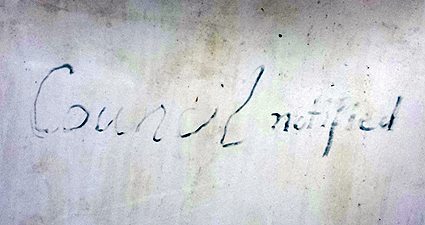 Council notified